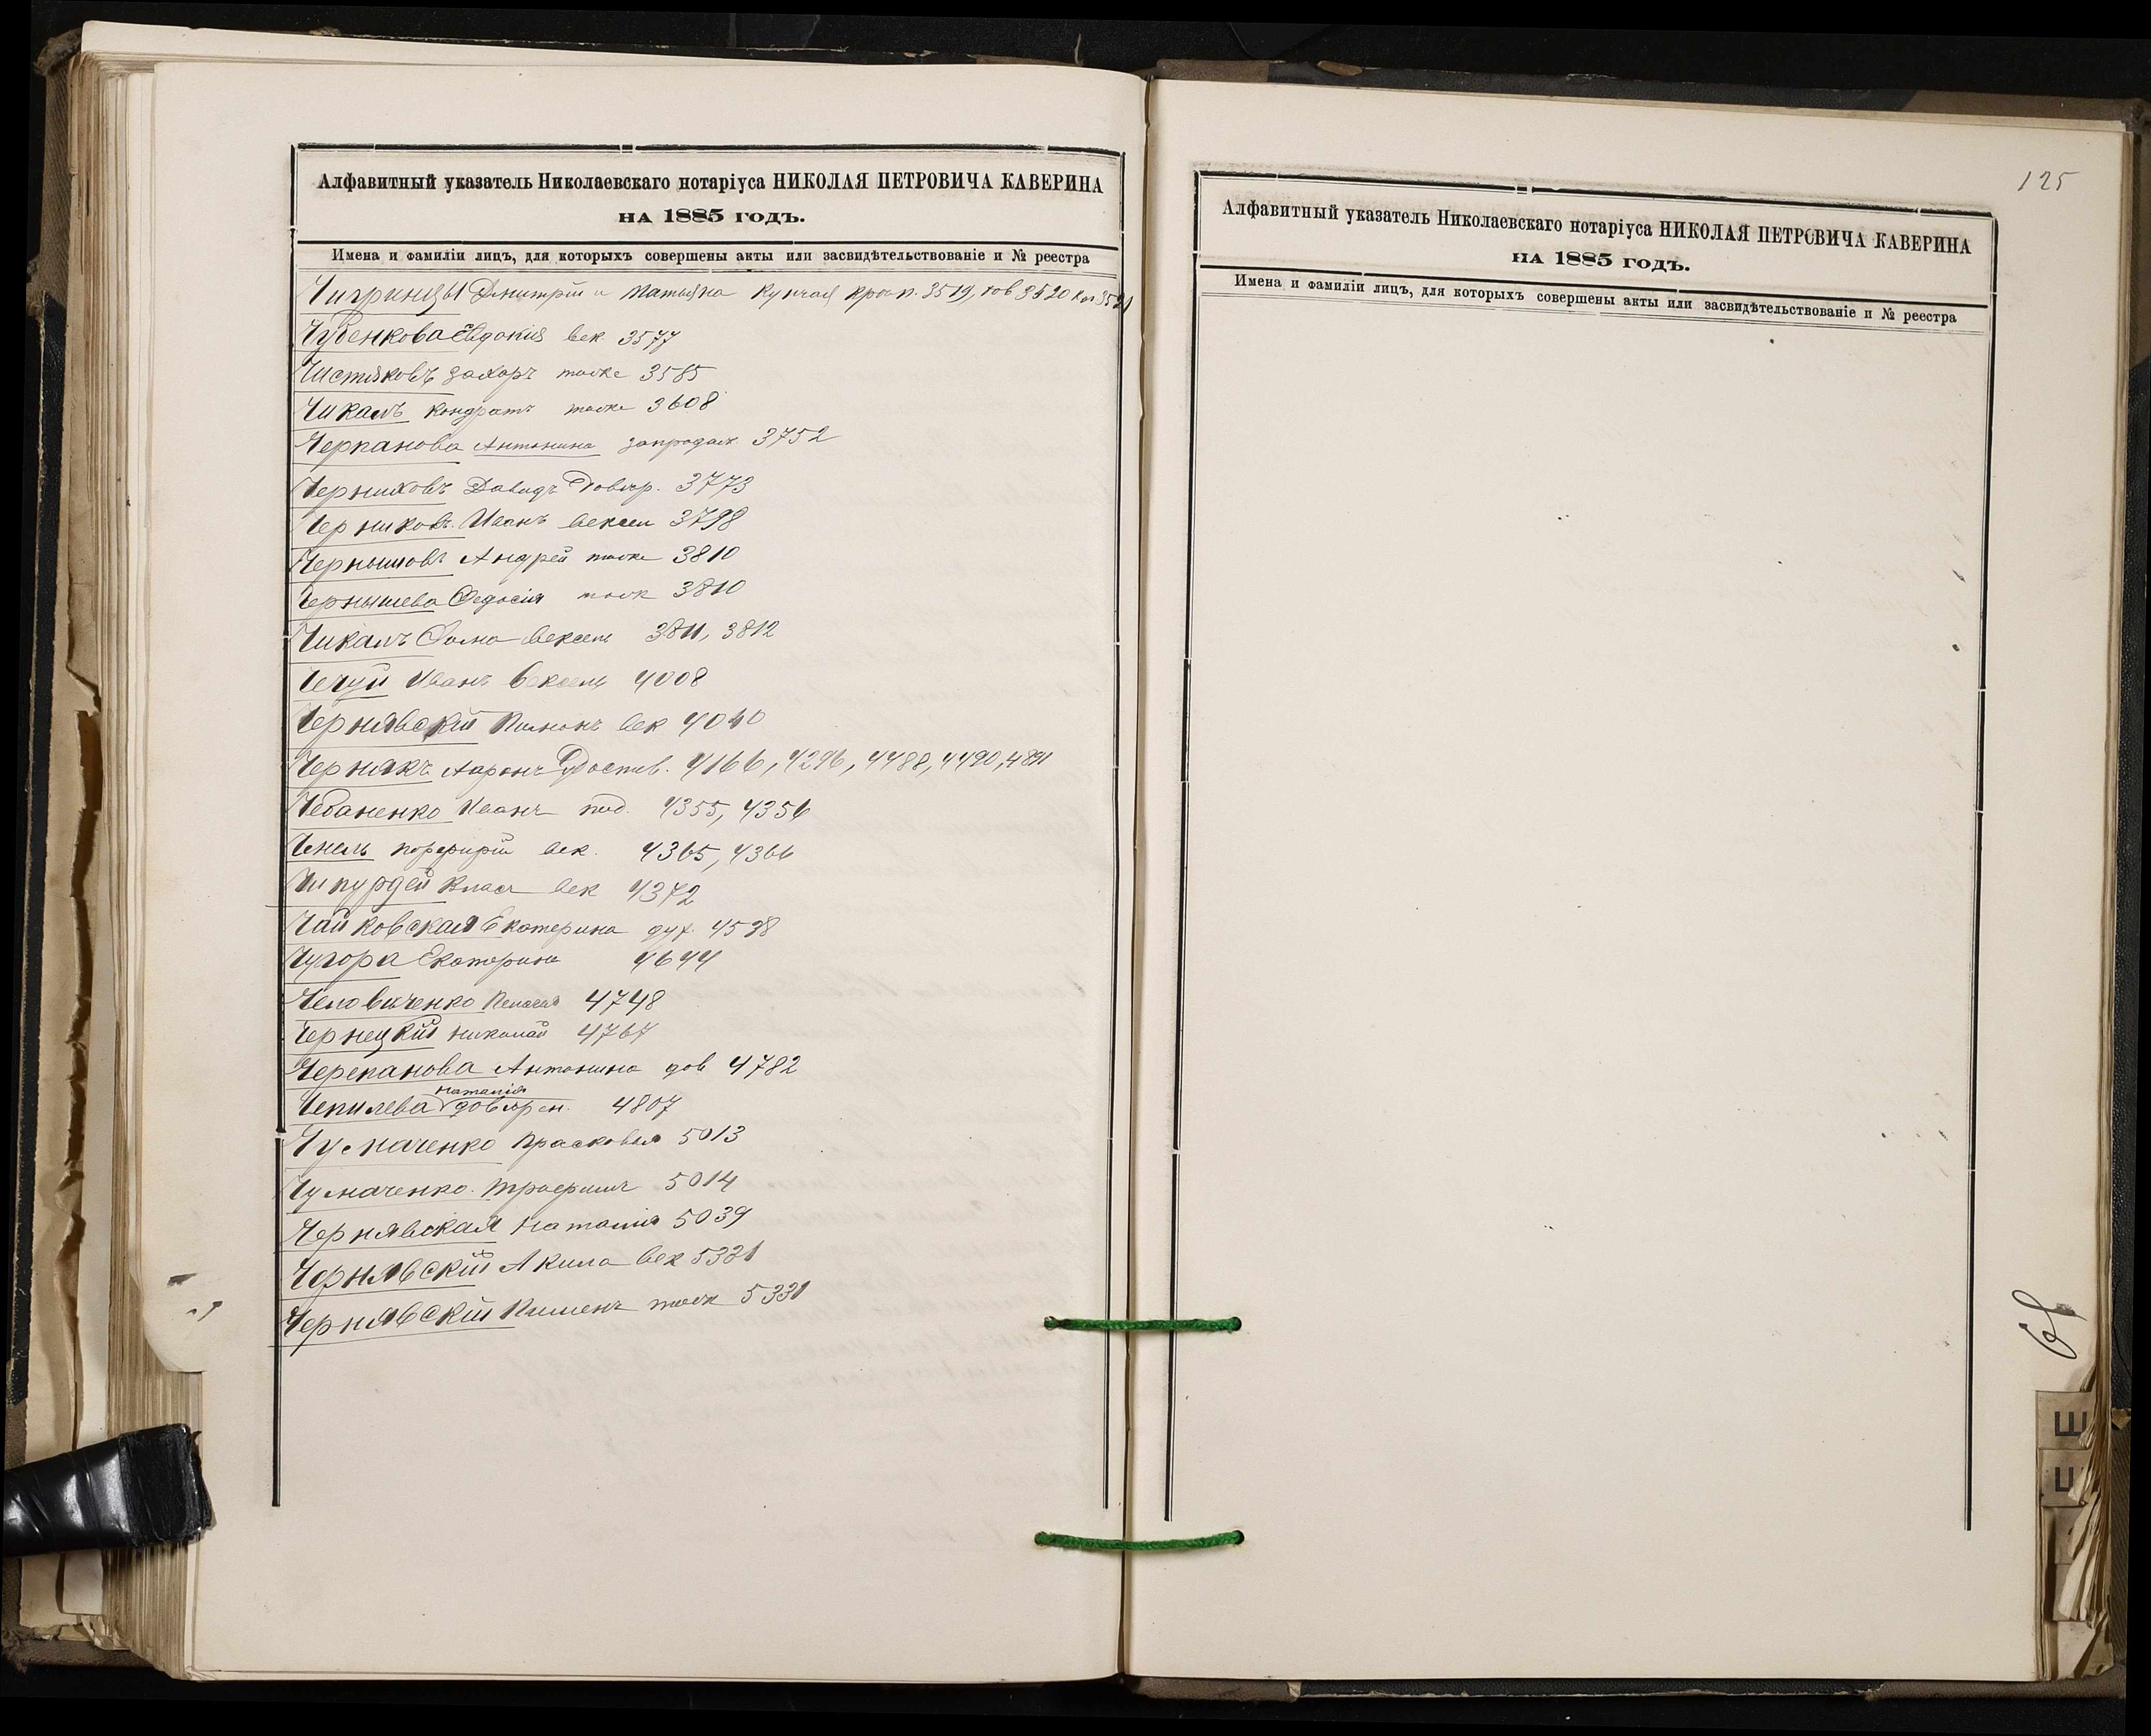 Алфавитный указатель Николаевскаго нотаріуса НИКОЛАЯ ПЕТРОВИЧА КАВЕРИНА
НА 1885 ГОДЪ.
Имена и фамиліи лицъ, для которыхъ совершены акты или засвидѣтельствованіе и № реестра
Чигринцы Дмитрій и Татьяна Купчая 3519, 3520 3521
Чубенкова Евдокия век 3577
Чистяковъ Захаръ тоже 3585
Чикалъ Кондратъ тоже 3608
Черпанова Антонина запродаж. 3752
Черниховъ Давидъ Довѣр. 3773
Черниковъ. Иванъ вексел 3798
Чернышовъ Андрей тоже 3810
Чернышева Федосія тож 3810
Чикалъ Фома вексель 3811, 3812
Чечуй Иванъ вексель 4008
Чернявскій Пимонъ век 4040
Чернякъ Ааронъ 4166, 4296, 4488, 4490, 4891
Чебаненко Иванъ под. 4355, 4356
Ченель порфирій век. 4365, 4366
Чипурдей Власъ век 4372
Чайковская Екатерина дух. 4598
Чугора Екатерина 4644
Человиченко Пелагея 4748
Чернецкій николай 4767
Черепанова Антонина дов 4782
Чепилева Наталія дов 4807
Чумаченко Прасковья 5013
Чумаченко. Трофимъ 5014
Чернявская Наталия 5039
Чернявскій Акила век 5331
Чернявскій Пименъ тож 5331
125
Алфавитный указатель Николаевскаго нотаріуса НИКОЛАЯ ПЕТРОВИЧА КАВЕРИНА
НА 1885 ГОДЪ.
Имена и фамиліи лицъ, для которыхъ совершены акты или засвидѣтельствованіе и № реестра